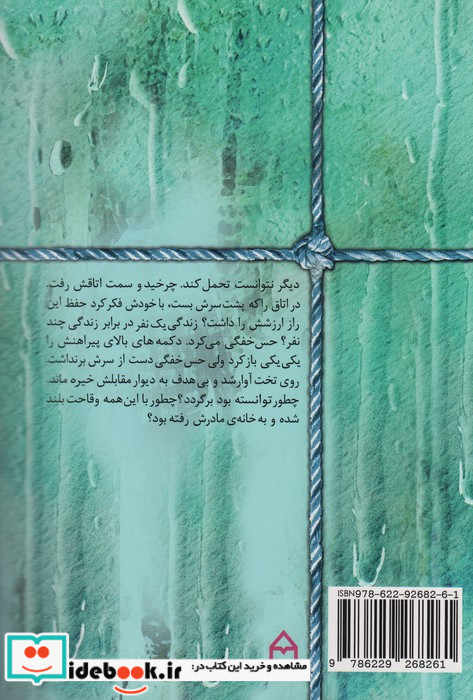 دیگر نتوانست تحمل کند. چرخید و سمت اتاقش رفت.
در اتاق را که پشت سرش بست، با خودش فکر کرد حفظ این
راز ارزشش را داشت؟ زندگی یک نفر در برابر زندگی چند
نفر؟ حس خفگی می‌کرد. دکمه های بالای پیراهنش را
یکی یکی باز کرد ولی حس خفگی دست از سرش برنداشت.
روی تخت آوار شد و بی هدف به دیوار مقابلش خیره ماند.
چطور توانسته بود برگردد؟ چطور با این همه وقاحت بلند
شده و به خانه‌ی مادرش رفته بود؟
ISBN978-622-92682-6-1
9 786229 268261
idebook.ir
مشاهده و خرید این کتاب در: